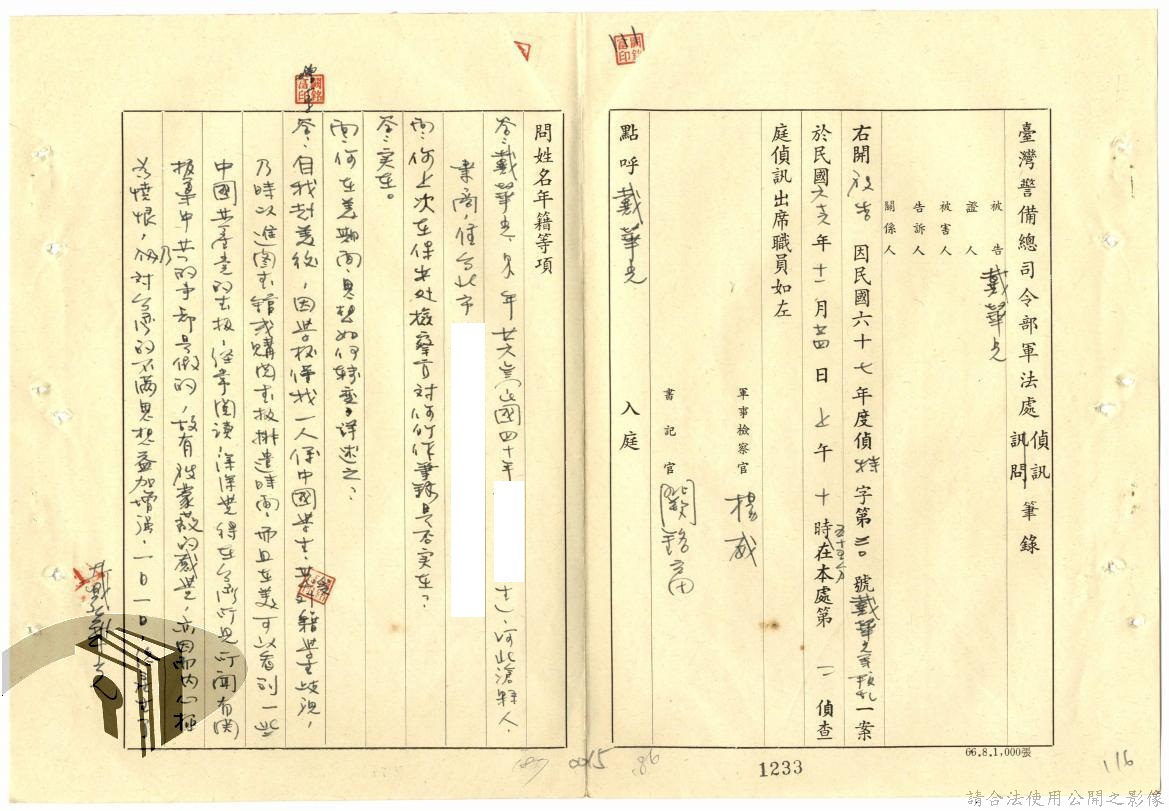 臺灣警備總司令部軍法處偵訊訊問筆錄
被告 戴華光
證人
被害人
告訴人
關係人
右開被告因民國六十七年度偵特字第三〇號戴華光等叛亂一案
於民國六十六年十一月廿四日上午十時五十五分在本處第一偵查
庭偵訊出席職員如左
軍事檢察官 楊威
書記官 關銘富
點呼戴華光 入庭
問姓名年籍等項
答:戴華光、男、年廿六歲民國四十年
生、河北滄縣人、
業商,住台北市
問:你上次在保安处檢察官对你所作筆錄是否实在?
答:实在。
問:你在美期間思想如何轉变?详述之?
答:自我赴美後,因學校僅我一人係中國學生,其外籍學生歧視,
乃時以進圖書館或購閱書报排遣時間,而且在美可以看到一些
中國共產党的书报,經常閱讀,深深覺得在台湾所見所聞有関
报導中共的事都是假的,故有被蒙蔽的感覺,亦因而内心極
為憤恨,乃对台湾的不满思想益加增强,一日一日
戴華光
66.8.1,000張
1233
0015
86
116
請合法使用公開之影像